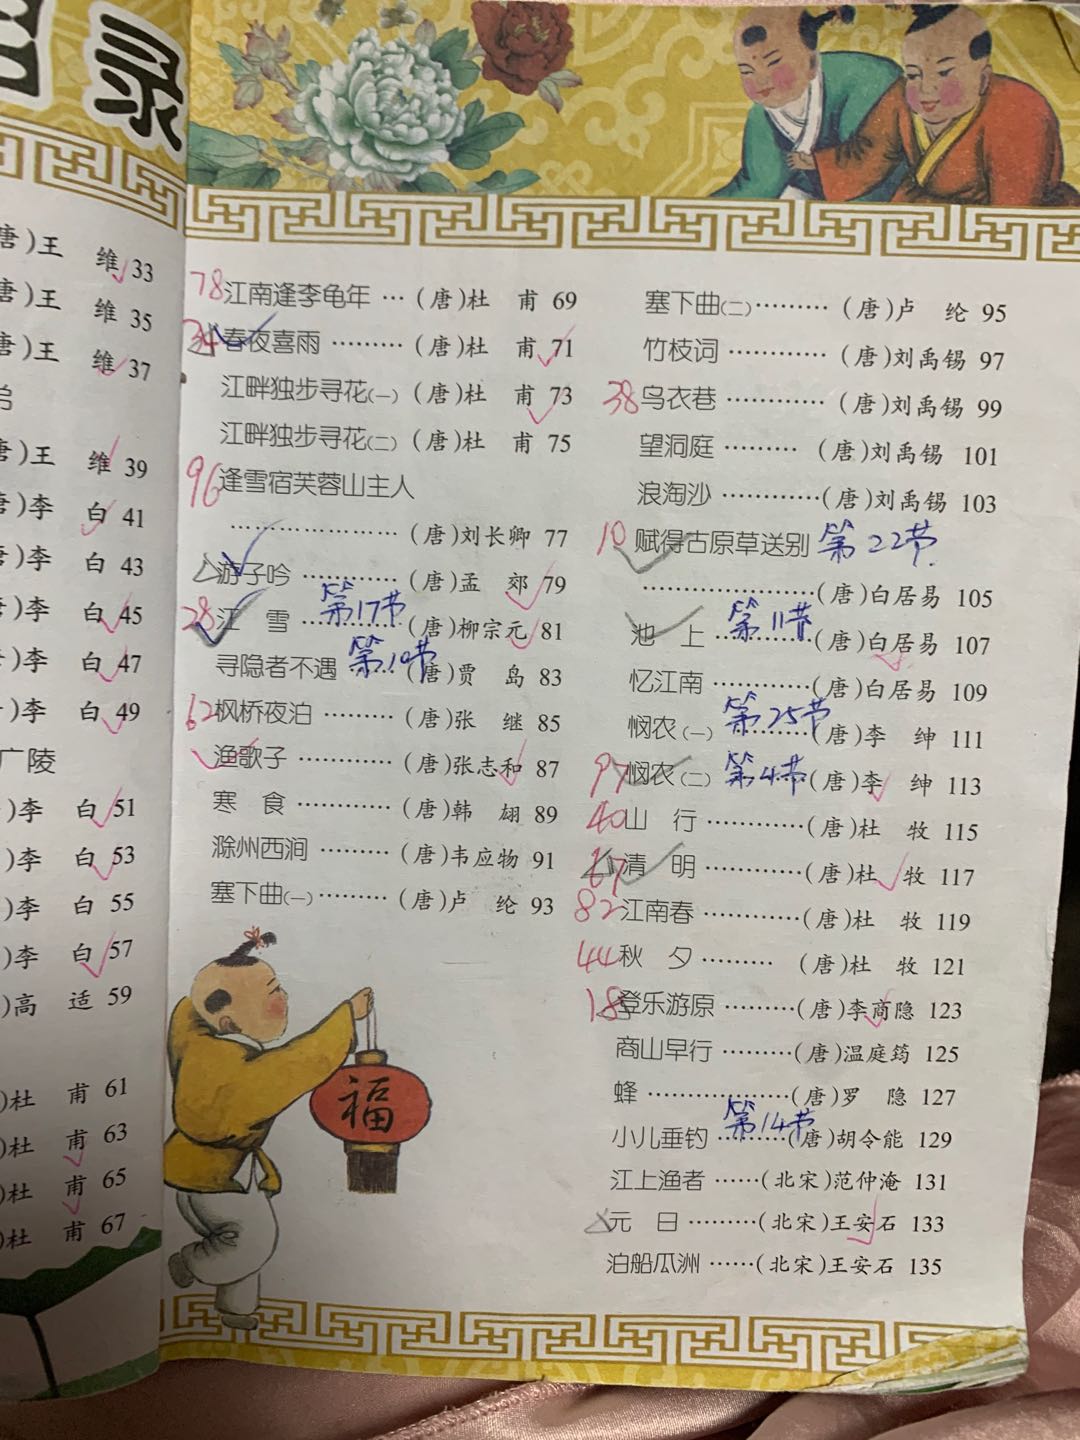 录
唐)王 维 33
唐)王 维 35
唐)王 维 37
唐)王 维 39
唐)李 白 41
)李 白 43
)李 白 45
)李 白 47
)李 白 49
广陵
)李 白 51
)李 白 53
)李 白 55
)李 白 57
)高 适 59
)杜 甫 61
)杜 甫 63
)杜 甫 65
)杜 甫 67
78 江南逢李龟年 … (唐)杜 甫 69
34 春夜喜雨 ……… (唐)杜 甫 71
江畔独步寻花(一) (唐)杜 甫 73
江畔独步寻花(二) (唐)杜 甫 75
96 逢雪宿芙蓉山主人
……………… (唐)刘长卿 77
游子吟 ………… (唐)孟 郊 79
28 江 雪 第17节 ………… (唐)柳宗元 81
寻隐者不遇 第10节 …… (唐)贾 岛 83
62 枫桥夜泊 ……… (唐)张 继 85
渔歌子 ………… (唐)张志和 87
寒 食 ………… (唐)韩 翃 89
滁州西涧 ……… (唐)韦应物 91
塞下曲(一) ……… (唐)卢 纶 93
福
塞下曲(二) ……… (唐)卢 纶 95
竹枝词 ………… (唐)刘禹锡 97
38 乌衣巷 ………… (唐)刘禹锡 99
望洞庭 ……… (唐)刘禹锡 101
浪淘沙 ………… (唐)刘禹锡 103
10 赋得古原草送别 第22节
………………… (唐)白居易 105
池 上 第11节 ………… (唐)白居易 107
忆江南 ………… (唐)白居易 109
悯农(一) 第25节 ……… (唐)李 绅 111
97 悯农(二) 第4节 (唐)李 绅 113
40 山 行 ………… (唐)杜 牧 115
67 清 明 ………… (唐)杜 牧 117
82 江南春 ………… (唐)杜 牧 119
44 秋 夕 ……… (唐)杜 牧 121
18 登乐游原 ……… (唐)李商隐 123
商山早行 ……… (唐)温庭筠 125
蜂 ……………… (唐)罗 隐 127
小儿垂钓 第14节 ……… (唐)胡令能 129
江上渔者 …… (北宋)范仲淹 131
元 日 ……… (北宋)王安石 133
泊船瓜洲 …… (北宋)王安石 135